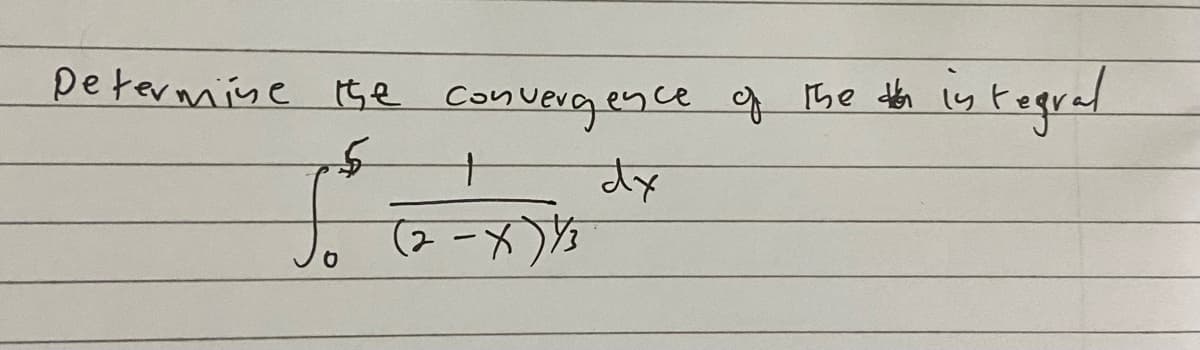 Determine the convergence of the integral
∫₀⁵ 1/(2-x)^1/3 dx